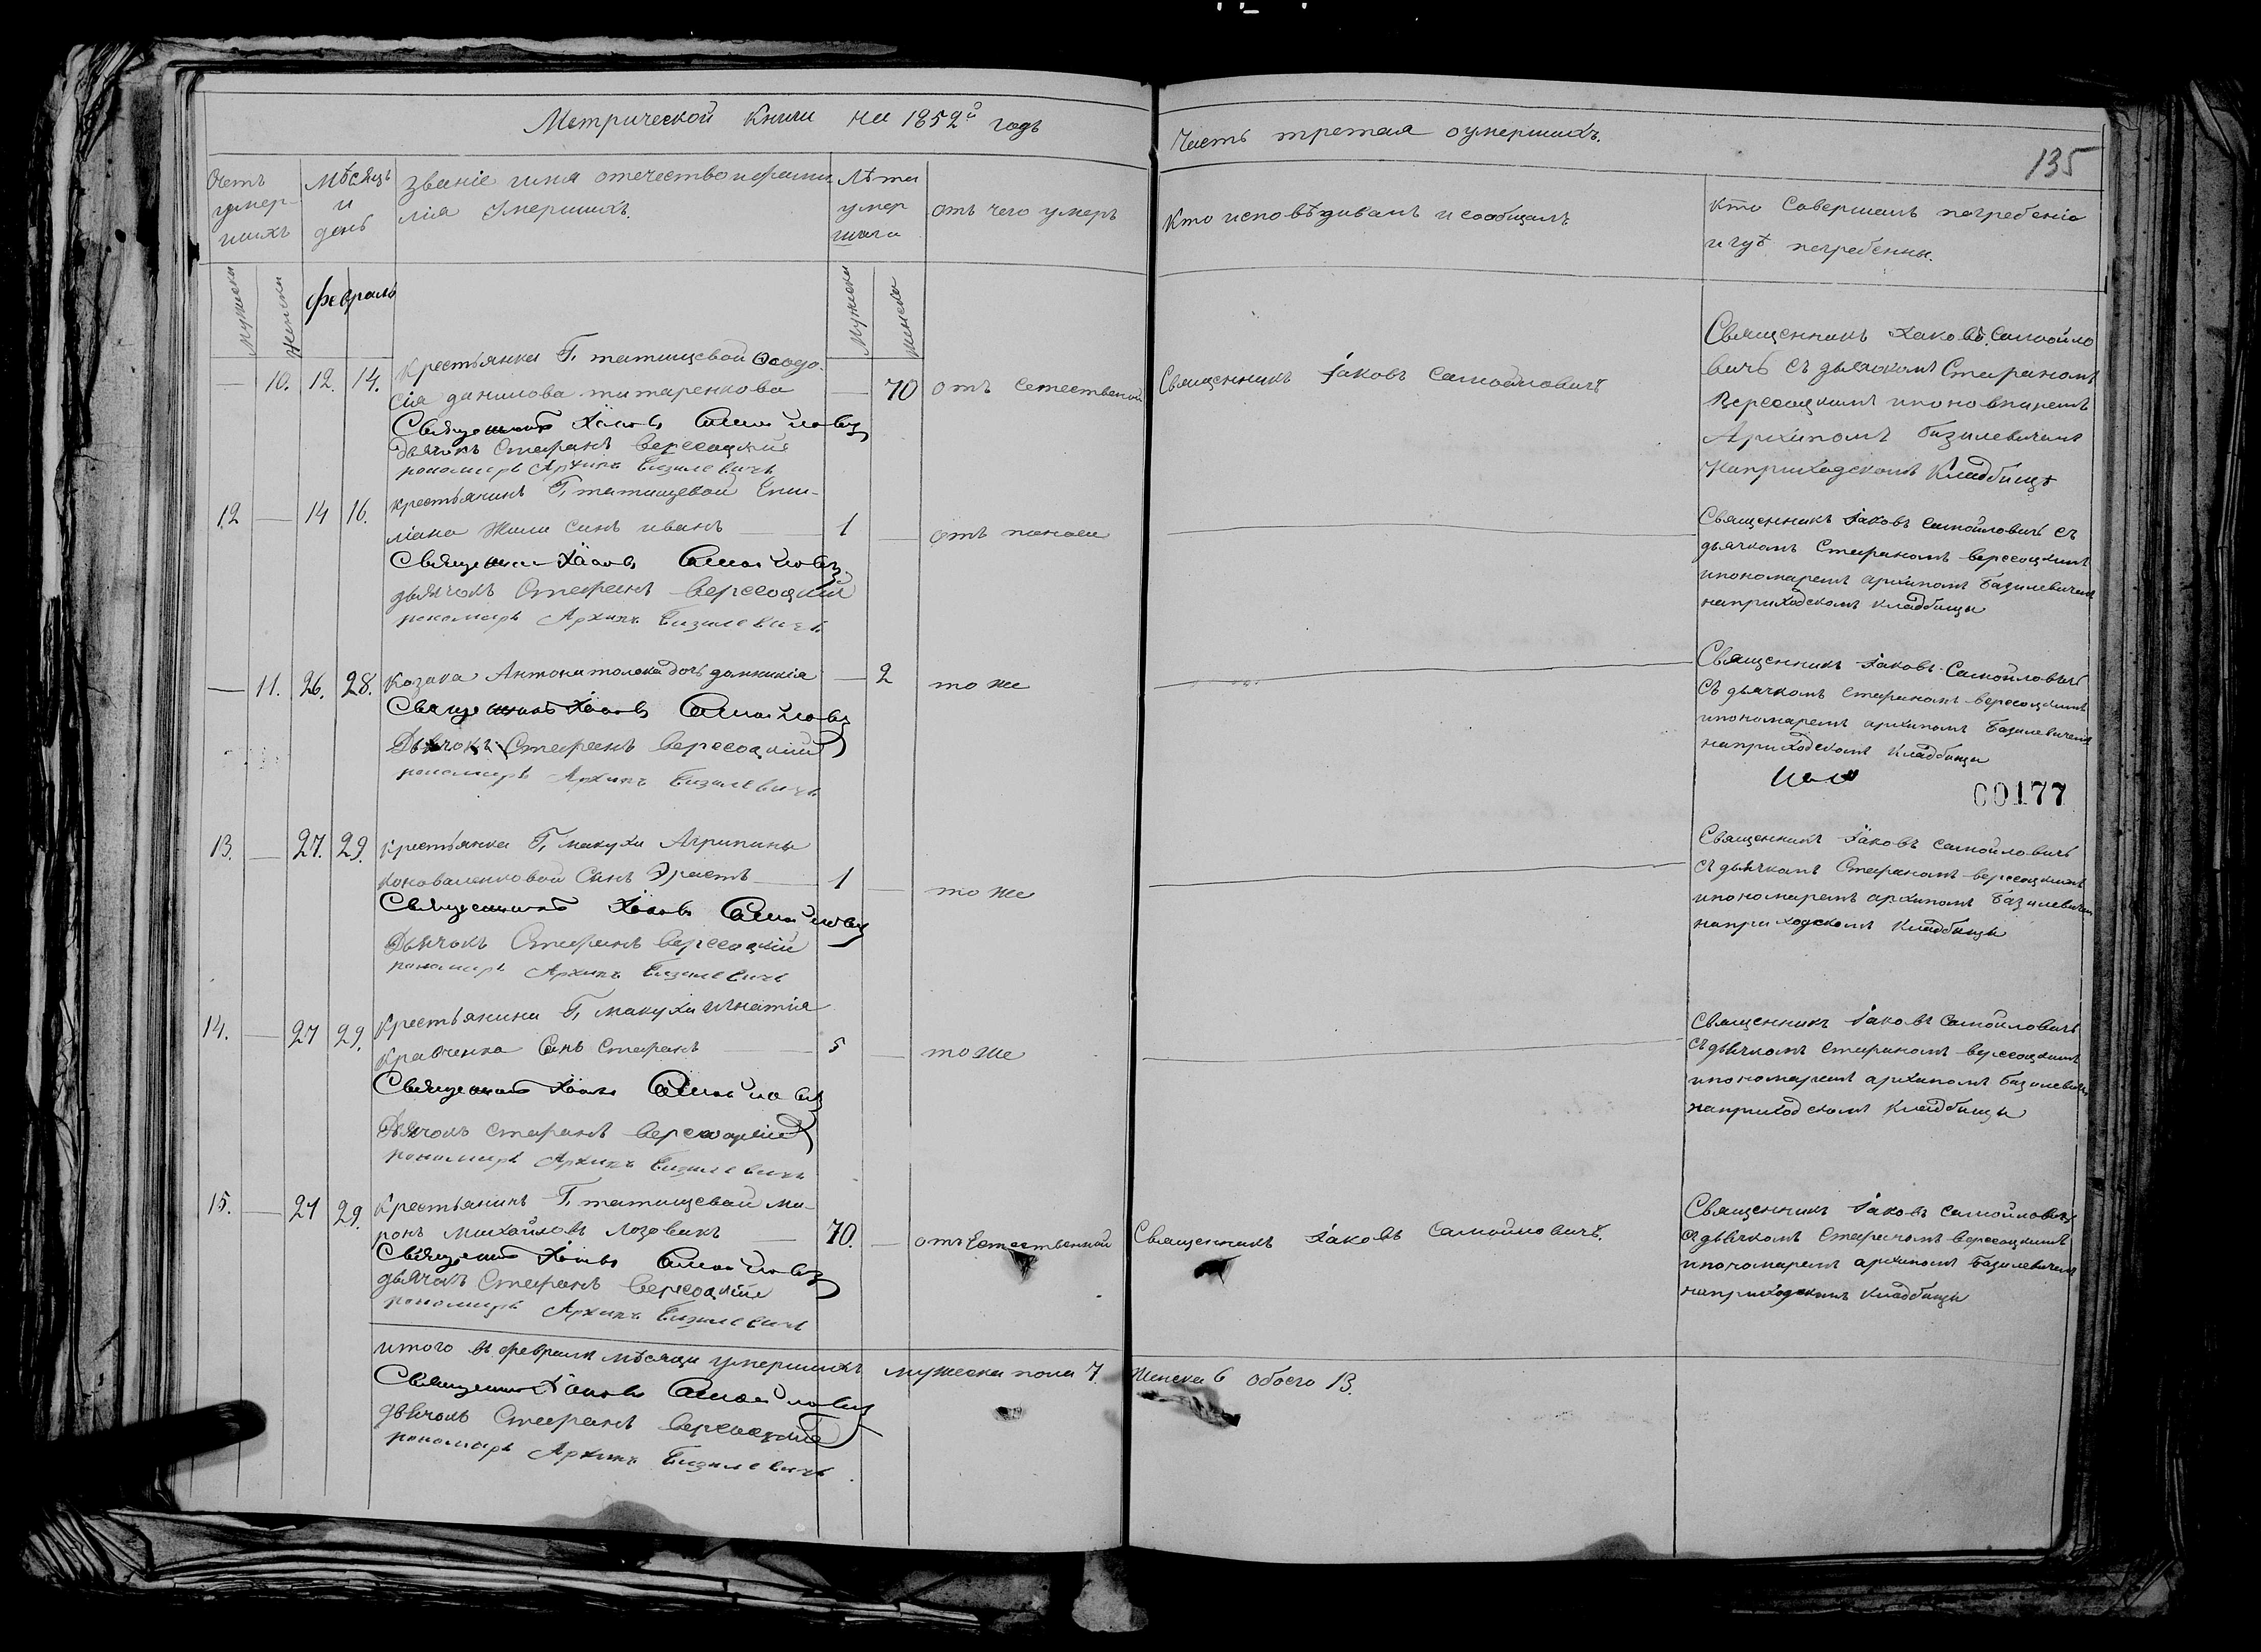 Метрической книги на 1852й годъ
Часть третая оумершихъ.
135
Счетъ умер-шихъ
Мѣсяцъ и день
званіе имя отечество ифами-
лія Умершихъ.
Лѣта умер шаго
отъ чего умеръ
Кто исповѣдивалъ и сообщалъ
Кто Совершалъ погребеніе
игдѣ погребенны.
Мужеска
женска
Февраль
Мужеска
женска
— 10. 12. 14. Крестьянка Г. татищевой Ѳеодо-
сія данилова титаренкова — 70 отъ Естественой Священникъ Іаковъ Самойловичъ
Священникъ Іаковъ Самойлович
дьячокъ Стефанъ Вересоцкій
пономарь Архипъ Базилевичъ
Священникъ Іаковъ Самойло
вичъ съ дьячкомъ Стефаномъ
Вересоцкимъ ипономаремъ
Архипомъ базилевичемъ
наприходскомъ Кладбищѣ
12 — 14 16. крестьянинъ Г. татищевой Еми-
ліана Жили Синъ иванъ — 1 — отъ поноса —
Священник Іаковъ Самойлович
дьячокъ Стефанъ Вересоцкій
пономарь Архипъ Базилевичъ
Священникъ Іаковъ Самойловичъ съ
дьячкомъ Стефаномъ вересоцкимъ
ипономаремъ архипомъ базилевичемъ
наприходскомъ кладбищи
— 11. 26. 28. Козака Антона толока дочь домникія — 2 то же —
Священникъ Іаковъ Самойлович
Дьячокъ Стефанъ Вересоцкій
пономарь Архипъ Базилевичъ
Священникъ Іаковъ Самойловичъ
Съ дьячкомъ стефаномъ вересоцкимъ
ипономаремъ архипомъ Базилевичемъ
наприходскомъ Кладбищи
00177
13. — 27. 29. Крестьянки Г. макухи Агрипины
коноваленковой Синъ Эрастъ — 1 — то же —
Священникъ Іаковъ Самойлович
Дьячокъ Стефанъ Вересоцкій
пономарь Архипъ Базилевичъ
Священникъ Іаковъ Самойловичъ
съ дьячкомъ Стефаномъ вересоцкимъ
ипономаремъ архипомъ Базилевичем
наприходскомъ Кладбищи
14. — 27 29. Крестьянина Г. макухи игнатія
кравченка Синъ Стефанъ — 5 — то же —
Священникъ Іаковъ Самойлович
Дьячокъ Стефанъ Вересоцкій
пономарь Архипъ Базилевичъ
Священникъ Іаковъ Самойловичъ
съ дьячкомъ стефаномъ вересоцкимъ
ипономаремъ архипомъ базилевичем
наприходскомъ Кладбищи
15. — 27 29. Крестьянинъ Г. татищевой ми-
ронъ михайловъ лозовикъ — 70. — отъ Естественной Священникъ Іаковъ Самойловичъ.
Священникъ Іаковъ Самойлович
дьячокъ Стефанъ Вересоцкій
пономарь Архипъ Базилевичъ
Священникъ Іаковъ Самойловичъ
съ дьячкомъ Стефаномъ вересоцкимъ
ипономаремъ архипомъ базилевичемъ
наприходскомъ Кладбищи
итого въ февралѣ мѣсяци умершихъ мужеска пола 7. Женска 6 обоего 13.
Священникъ Іаковъ Самойлович
дьячокъ Стефанъ Вересоцкій
пономарь Архипъ Базилевичъ